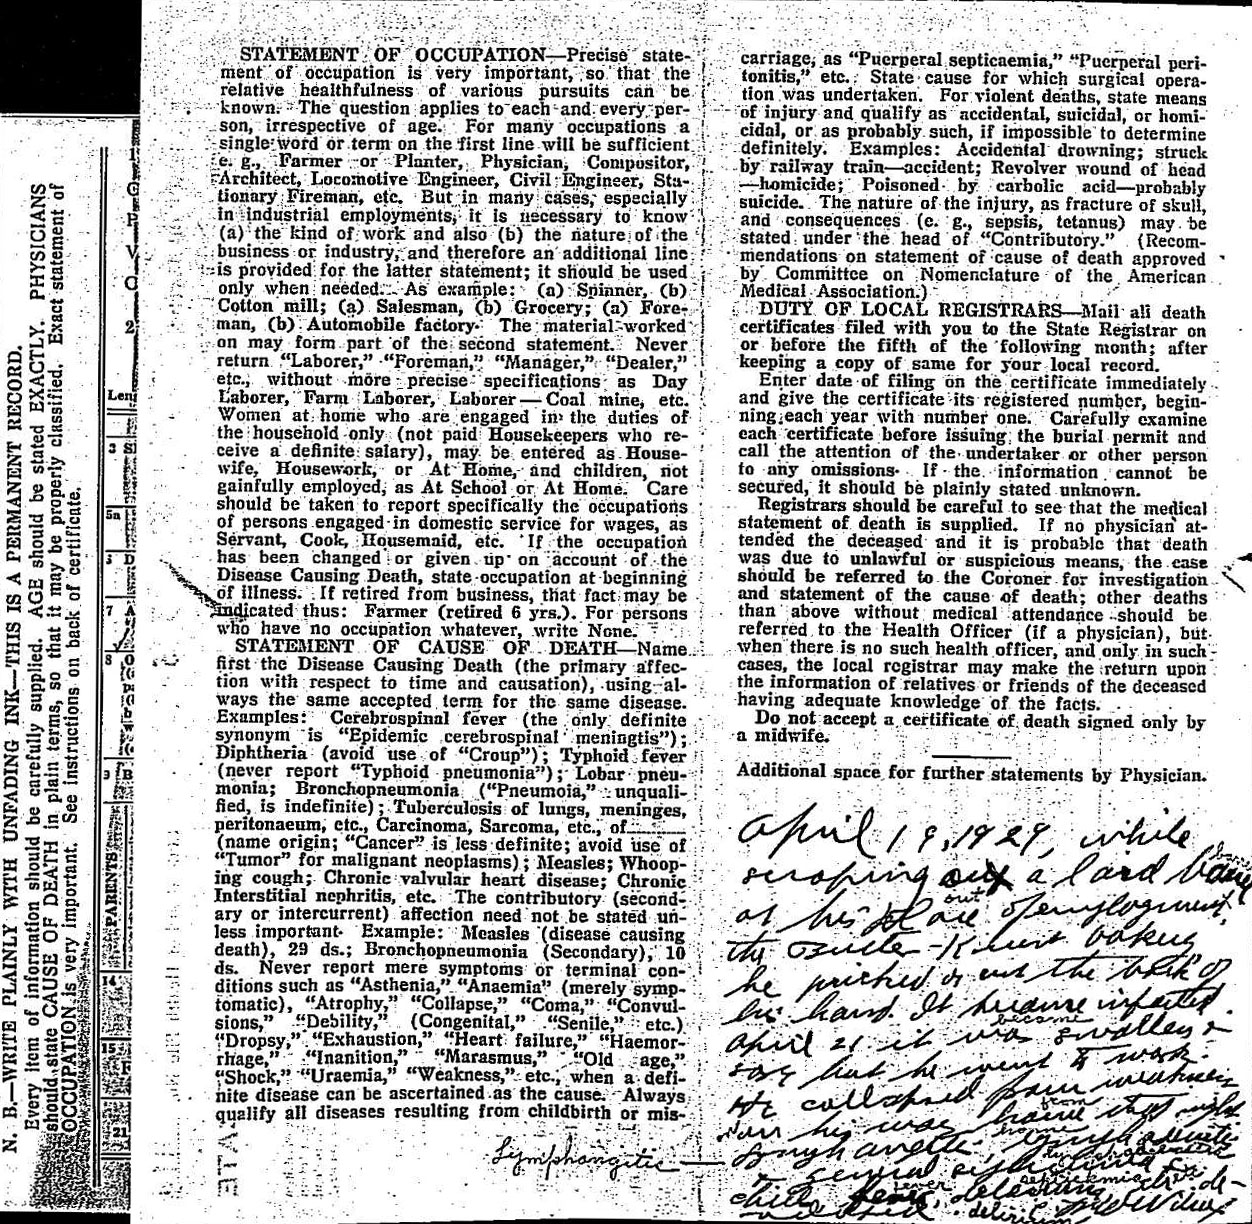 N. B.—WRITE PLAINLY WITH UNFADING INK—THIS IS A PERMANENT RECORD.
Every item of information should be carefully supplied. AGE should be stated EXACTLY. PHYSICIANS
should state CAUSE OF DEATH in plain terms, so that it may be properly classified. Exact statement of
OCCUPATION is very important. See instructions on back of certificate.
G
P
V
C
2
Len
3 S
5a
5 D
7 A
8 O
9 B
PARENTS
14
15
21
STATEMENT OF OCCUPATION—Precise state-
ment of occupation is very important, so that the
relative healthfulness of various pursuits can be
known. The question applies to each and every per-
son, irrespective of age. For many occupations a
single word or term on the first line will be sufficient
e. g., Farmer or Planter, Physician, Compositor,
Architect, Locomotive Engineer, Civil Engineer, Sta-
tionary Fireman, etc. But in many cases, especially
in industrial employments, it is necessary to know
(a) the kind of work and also (b) the nature of the
business or industry, and therefore an additional line
is provided for the latter statement; it should be used
only when needed. As example: (a) Spinner, (b)
Cotton mill; (a) Salesman, (b) Grocery; (a) Fore-
man, (b) Automobile factory. The material worked
on may form part of the second statement. Never
return "Laborer," "Foreman," "Manager," "Dealer,"
etc., without more precise specifications as Day
Laborer, Farm Laborer, Laborer—Coal mine, etc.
Women at home who are engaged in the duties of
the household only (not paid Housekeepers who re-
ceive a definite salary), may be entered as House-
wife, Housework, or At Home, and children, not
gainfully employed, as At School or At Home. Care
should be taken to report specifically the occupations
of persons engaged in domestic service for wages, as
Servant, Cook, Housemaid, etc. If the occupation
has been changed or given up on account of the
Disease Causing Death, state occupation at beginning
of illness. If retired from business, that fact may be
indicated thus: Farmer (retired 6 yrs.). For persons
who have no occupation whatever, write None.
STATEMENT OF CAUSE OF DEATH—Name
first the Disease Causing Death (the primary affec-
tion with respect to time and causation), using al-
ways the same accepted term for the same disease.
Examples: Cerebrospinal fever (the only definite
synonym is "Epidemic cerebrospinal meningtis");
Diphtheria (avoid use of "Croup"); Typhoid fever
(never report "Typhoid pneumonia"); Lobar pneu-
monia; Bronchopneumonia ("Pneumoia," unquali-
fied, is indefinite); Tuberculosis of lungs, meninges,
peritonaeum, etc., Carcinoma, Sarcoma, etc., of
(name origin; "Cancer" is less definite; avoid use of
"Tumor" for malignant neoplasms); Measles; Whoop-
ing cough; Chronic valvular heart disease; Chronic
Interstitial nephritis, etc. The contributory (second-
ary or intercurrent) affection need not be stated un-
less important. Example: Measles (disease causing
death), 29 ds.; Bronchopneumonia (Secondary), 10
ds. Never report mere symptoms or terminal con-
ditions such as "Asthenia," "Anaemia" (merely symp-
tomatic), "Atrophy," "Collapse," "Coma," "Convul-
sions," "Debility," (Congenital," "Senile," etc.)
"Dropsy," "Exhaustion," "Heart failure," "Haemor-
rhage," "Inanition," "Marasmus," "Old age,"
"Shock," "Uraemia," "Weakness," etc., when a defi-
nite disease can be ascertained as the cause. Always
qualify all diseases resulting from childbirth or mis-
carriage, as "Puerperal septicaemia," "Puerperal peri-
tonitis," etc. State cause for which surgical opera-
tion was undertaken. For violent deaths, state means
of injury and qualify as accidental, suicidal, or homi-
cidal, or as probably such, if impossible to determine
definitely. Examples: Accidental drowning; struck
by railway train—accident; Revolver wound of head
—homicide; Poisoned by carbolic acid—probably
suicide. The nature of the injury, as fracture of skull,
and consequences (e. g., sepsis, tetanus) may be
stated under the head of "Contributory." (Recom-
mendations on statement of cause of death approved
by Committee on Nomenclature of the American
Medical Association.)
DUTY OF LOCAL REGISTRARS—Mail all death
certificates filed with you to the State Registrar on
or before the fifth of the following month; after
keeping a copy of same for your local record.
Enter date of filing on the certificate immediately
and give the certificate its registered number, begin-
ning each year with number one. Carefully examine
each certificate before issuing the burial permit and
call the attention of the undertaker or other person
to any omissions. If the information cannot be
secured, it should be plainly stated unknown.
Registrars should be careful to see that the medical
statement of death is supplied. If no physician at-
tended the deceased and it is probable that death
was due to unlawful or suspicious means, the case
should be referred to the Coroner for investigation
and statement of the cause of death; other deaths
than above without medical attendance should be
referred to the Health Officer (if a physician), but
when there is no such health officer, and only in such
cases, the local registrar may make the return upon
the information of relatives or friends of the deceased
having adequate knowledge of the facts.
Do not accept a certificate of death signed only by
a midwife.
Additional space for further statements by Physician.
April 19, 1929, while
scraping out a lard
out
at his place of employment,
the Butter-Krust bakery
he pricked the back of
his hand. It became infected.
became
April 21 it was swollen &
sore but he went to work.
He collapsed from weakness
from
on his way home that night
home
Lymphangitis —
general
chills, fever, delirium
fever
septicemia
delirium